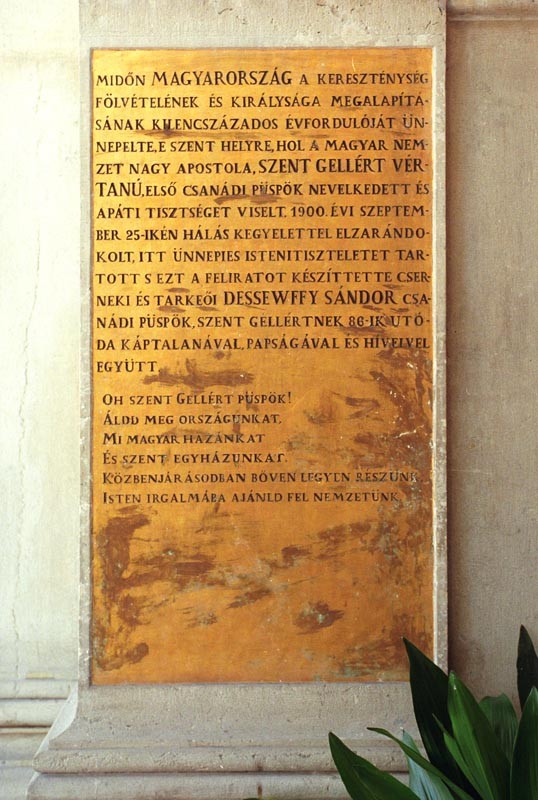 MIDŐN MAGYARORSZÁG A KERESZTÉNYSÉG
FÖLVÉTELÉNEK ÉS KIRÁLYSÁGA MEGALAPÍTÁ-
SÁNAK KILENCSZÁZADOS ÉVFORDULÓJÁT ÜN-
NEPELTE, E SZENT HELYRE, HOL A MAGYAR NEM-
ZET NAGY APOSTOLA, SZENT GELLÉRT VÉR-
TANÚ, ELSŐ CSANÁDI PÜSPÖK NEVELKEDETT ÉS
APÁTI TISZTSÉGET VISELT, 1900. ÉVI SZEPTEM-
BER 25-IKÉN HÁLÁS KEGYELETTEL ELZARÁNDO-
KOLT, ITT ÜNNEPIES ISTENITISZTELETET TAR-
TOTT S EZT A FELIRATOT KÉSZÍTTETTE CSER-
NEKI ÉS TARKEŐI DESSEWFFY SÁNDOR CSA-
NÁDI PÜSPÖK, SZENT GELLÉRTNEK 86-IK UTÓ-
DA KÁPTALANÁVAL, PAPSÁGÁVAL ÉS HÍVEIVEL
EGYÜTT.
OH SZENT GELLÉRT PÜSPÖK!
ÁLDD MEG ORSZÁGUNKAT,
MI MAGYAR HAZÁNKAT
ÉS SZENT EGYHÁZUNKAT.
KÖZBENJÁRÁSODBAN BŐVEN LEGYEN RÉSZÜNK,
ISTEN IRGALMÁBA AJÁNLD FEL NEMZETÜNK.